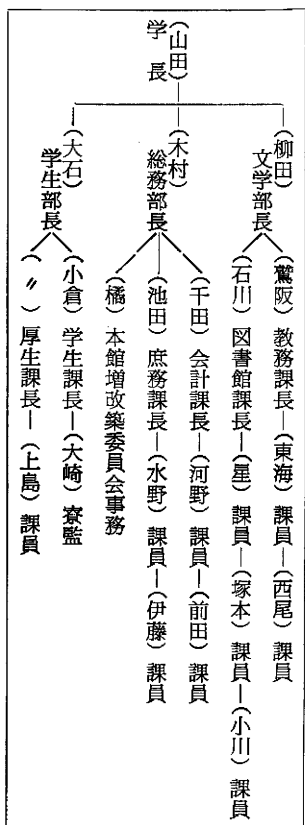 (山田)
学長
(柳田)
文学部長
(鷲阪) 教務課長―(東海) 課員―(西尾) 課員
(石川) 図書館課長―(星) 課員―(塚本) 課員―(小川) 課員
(木村)
総務部長
(千田) 会計課長―(河野) 課員―(前田) 課員
(池田) 庶務課長―(水野) 課員―(伊藤) 課員
(橘) 本館増改築委員会事務
(大石)
学生部長
(小倉) 学生課長―(大崎) 寮監
(〃) 厚生課長―(上島) 課員